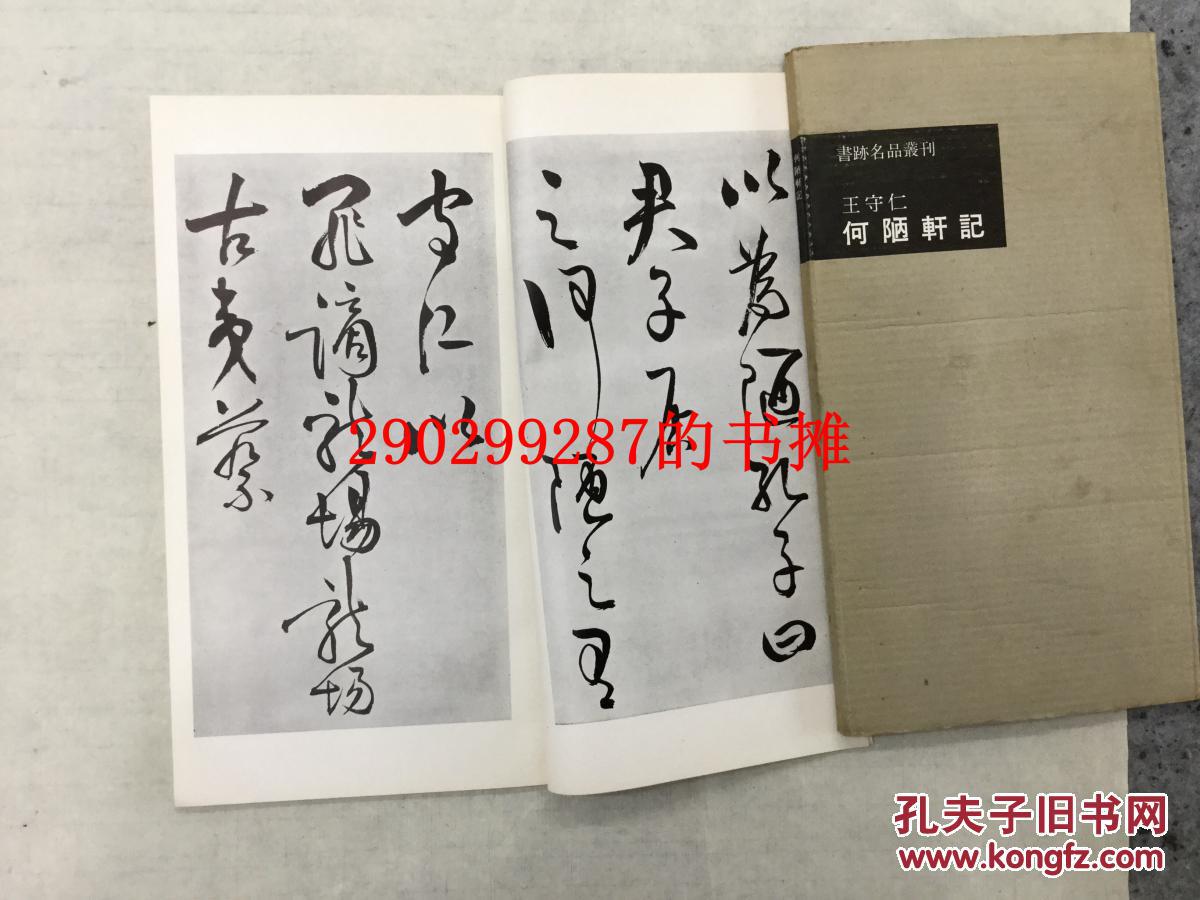 以爲陋孔子曰
君子居
之何陋之有
守仁以
罪謫龍場龍场
古夷蔡
書跡名品叢刊
王守仁
何陋軒記
290299287的书摊
孔夫子旧书网
www.kongfz.com